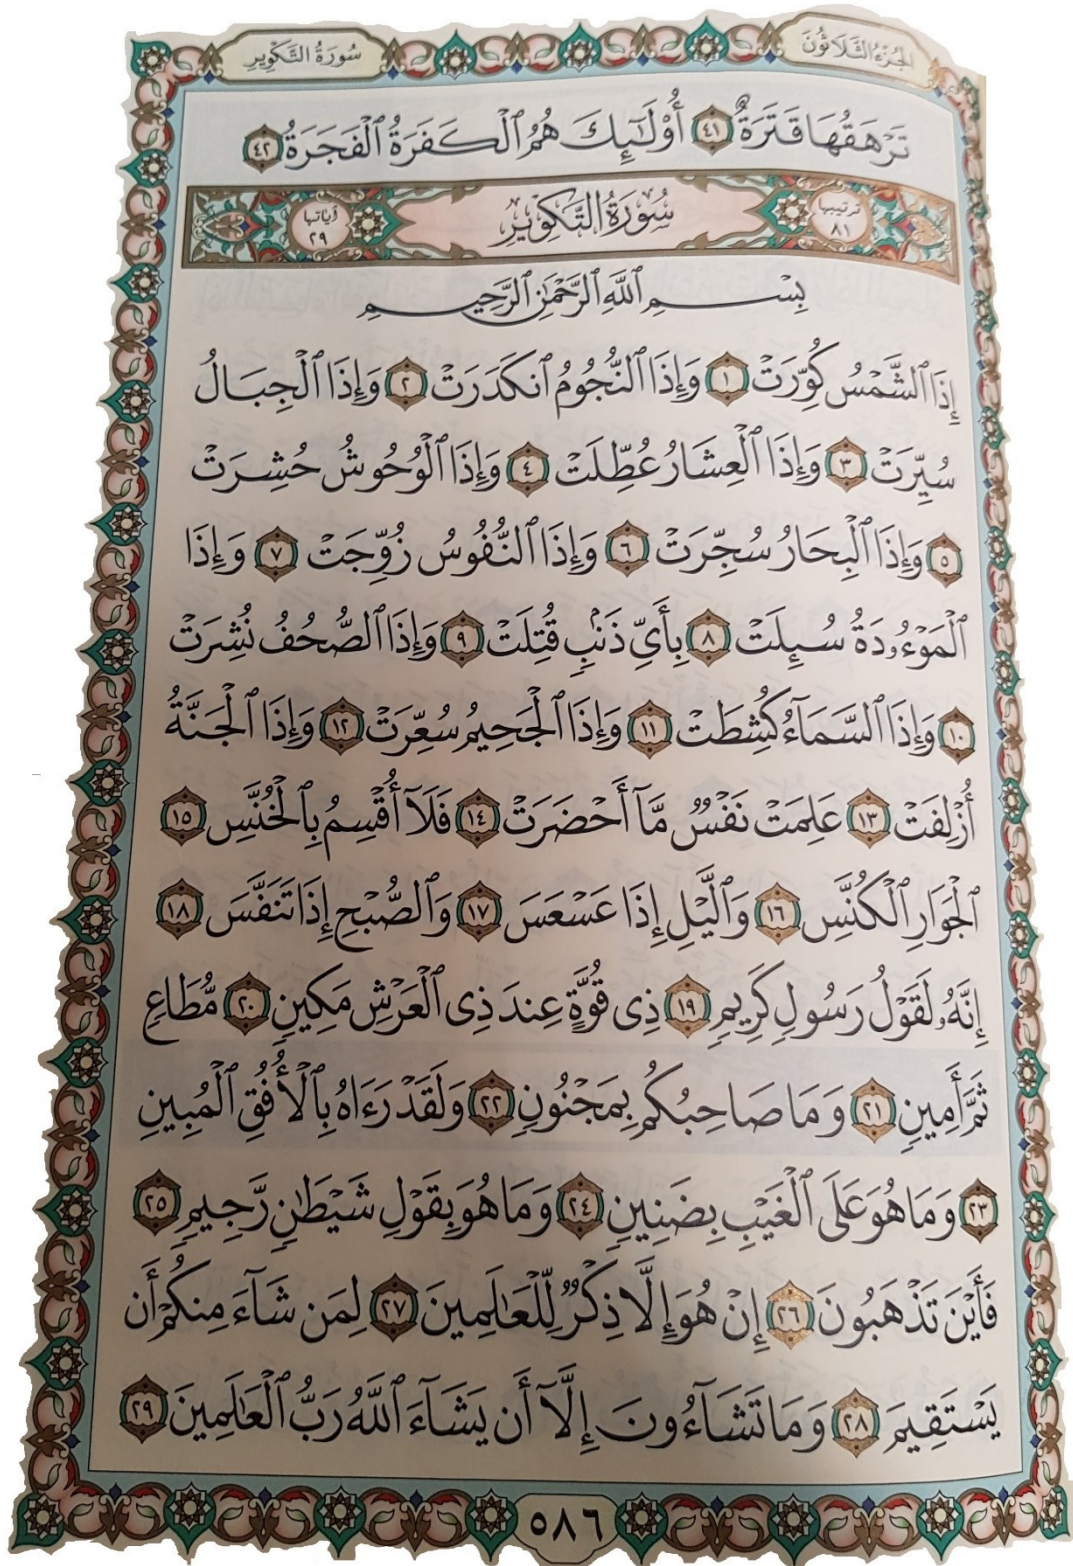 سُورَةُ التَّكْوِيرِ
الجُزْءُ الثَّلَاثُونَ
تَرْهَقُهَا قَتَرَةٌ ٤١ أُوْلَٰٓئِكَ هُمُ ٱلْكَفَرَةُ ٱلْفَجَرَةُ ٤٢
ترتيبها ٨١ سُورَةُ التَّكْوِيرِ آياتها ٢٩
بِسْمِ ٱللَّهِ ٱلرَّحْمَٰنِ ٱلرَّحِيمِ
إِذَا ٱلشَّمْسُ كُوِّرَتْ ١ وَإِذَا ٱلنُّجُومُ ٱنكَدَرَتْ ٢ وَإِذَا ٱلْجِبَالُ
سُيِّرَتْ ٣ وَإِذَا ٱلْعِشَارُ عُطِّلَتْ ٤ وَإِذَا ٱلْوُحُوشُ حُشِرَتْ
٥ وَإِذَا ٱلْبِحَارُ سُجِّرَتْ ٦ وَإِذَا ٱلنُّفُوسُ زُوِّجَتْ ٧ وَإِذَا
ٱلْمَوْءُۥدَةُ سُئِلَتْ ٨ بِأَيِّ ذَنۢبٍ قُتِلَتْ ٩ وَإِذَا ٱلصُّحُفُ نُشِرَتْ
١٠ وَإِذَا ٱلسَّمَآءُ كُشِطَتْ ١١ وَإِذَا ٱلْجَحِيمُ سُعِّرَتْ ١٢ وَإِذَا ٱلْجَنَّةُ
أُزْلِفَتْ ١٣ عَلِمَتْ نَفْسٌ مَّآ أَحْضَرَتْ ١٤ فَلَآ أُقْسِمُ بِٱلْخُنَّسِ ١٥
ٱلْجَوَارِ ٱلْكُنَّسِ ١٦ وَٱلَّيْلِ إِذَا عَسْعَسَ ١٧ وَٱلصُّبْحِ إِذَا تَنَفَّسَ ١٨
إِنَّهُۥ لَقَوْلُ رَسُولٍ كَرِيمٍ ١٩ ذِى قُوَّةٍ عِندَ ذِى ٱلْعَرْشِ مَكِينٍ ٢٠ مُّطَاعٍ
ثَمَّ أَمِينٍ ٢١ وَمَا صَاحِبُكُم بِمَجْنُونٍ ٢٢ وَلَقَدْ رَءَاهُ بِٱلْأُفُقِ ٱلْمُبِينِ
٢٣ وَمَا هُوَ عَلَى ٱلْغَيْبِ بِضَنِينٍ ٢٤ وَمَا هُوَ بِقَوْلِ شَيْطَٰنٍ رَّجِيمٍ ٢٥
فَأَيْنَ تَذْهَبُونَ ٢٦ إِنْ هُوَ إِلَّا ذِكْرٌ لِّلْعَٰلَمِينَ ٢٧ لِمَن شَآءَ مِنكُمْ أَن
يَسْتَقِيمَ ٢٨ وَمَا تَشَآءُونَ إِلَّآ أَن يَشَآءَ ٱللَّهُ رَبُّ ٱلْعَٰلَمِينَ ٢٩
٥٨٦